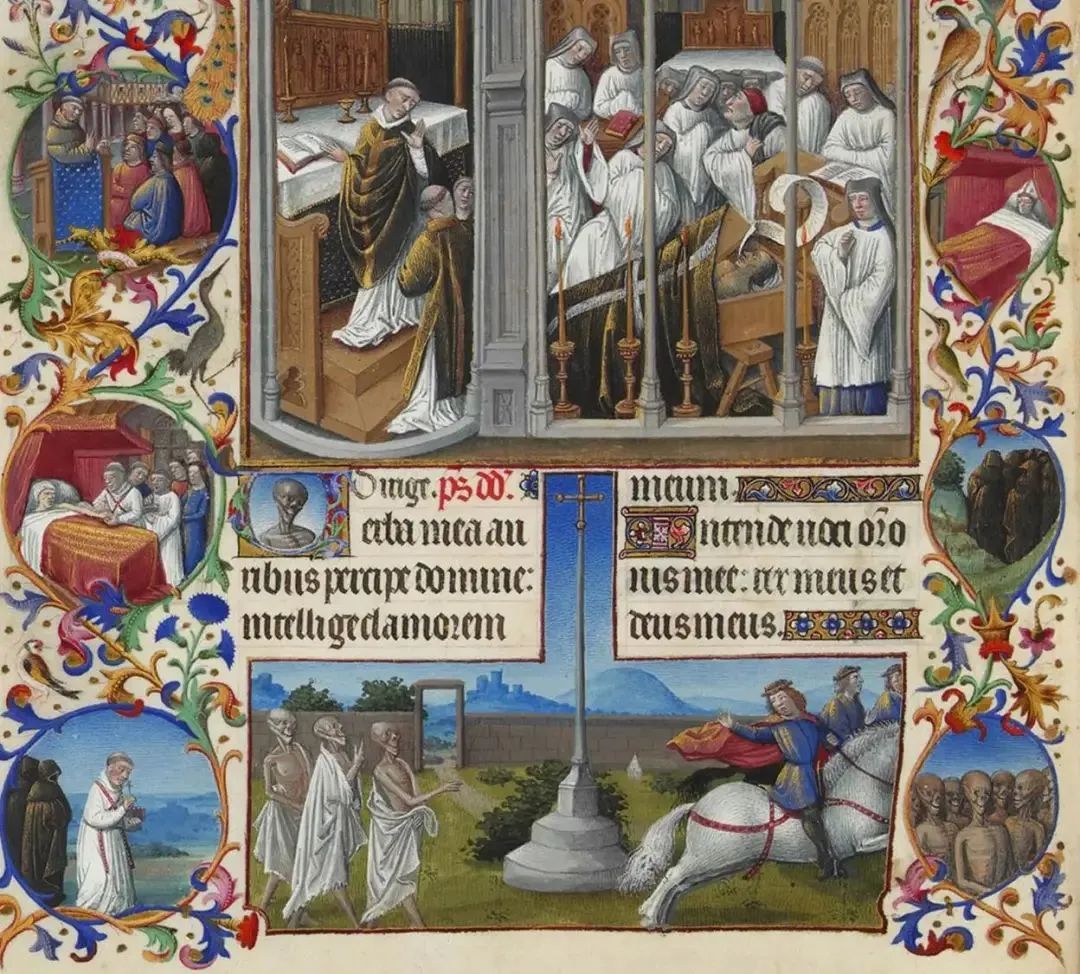 Dirige. p̄s dd̄.
Verba mea au
ribus percipe domine:
intellige clamorem
meum.
Intende uoci orō
nis mee: rex meus et
deus meus.